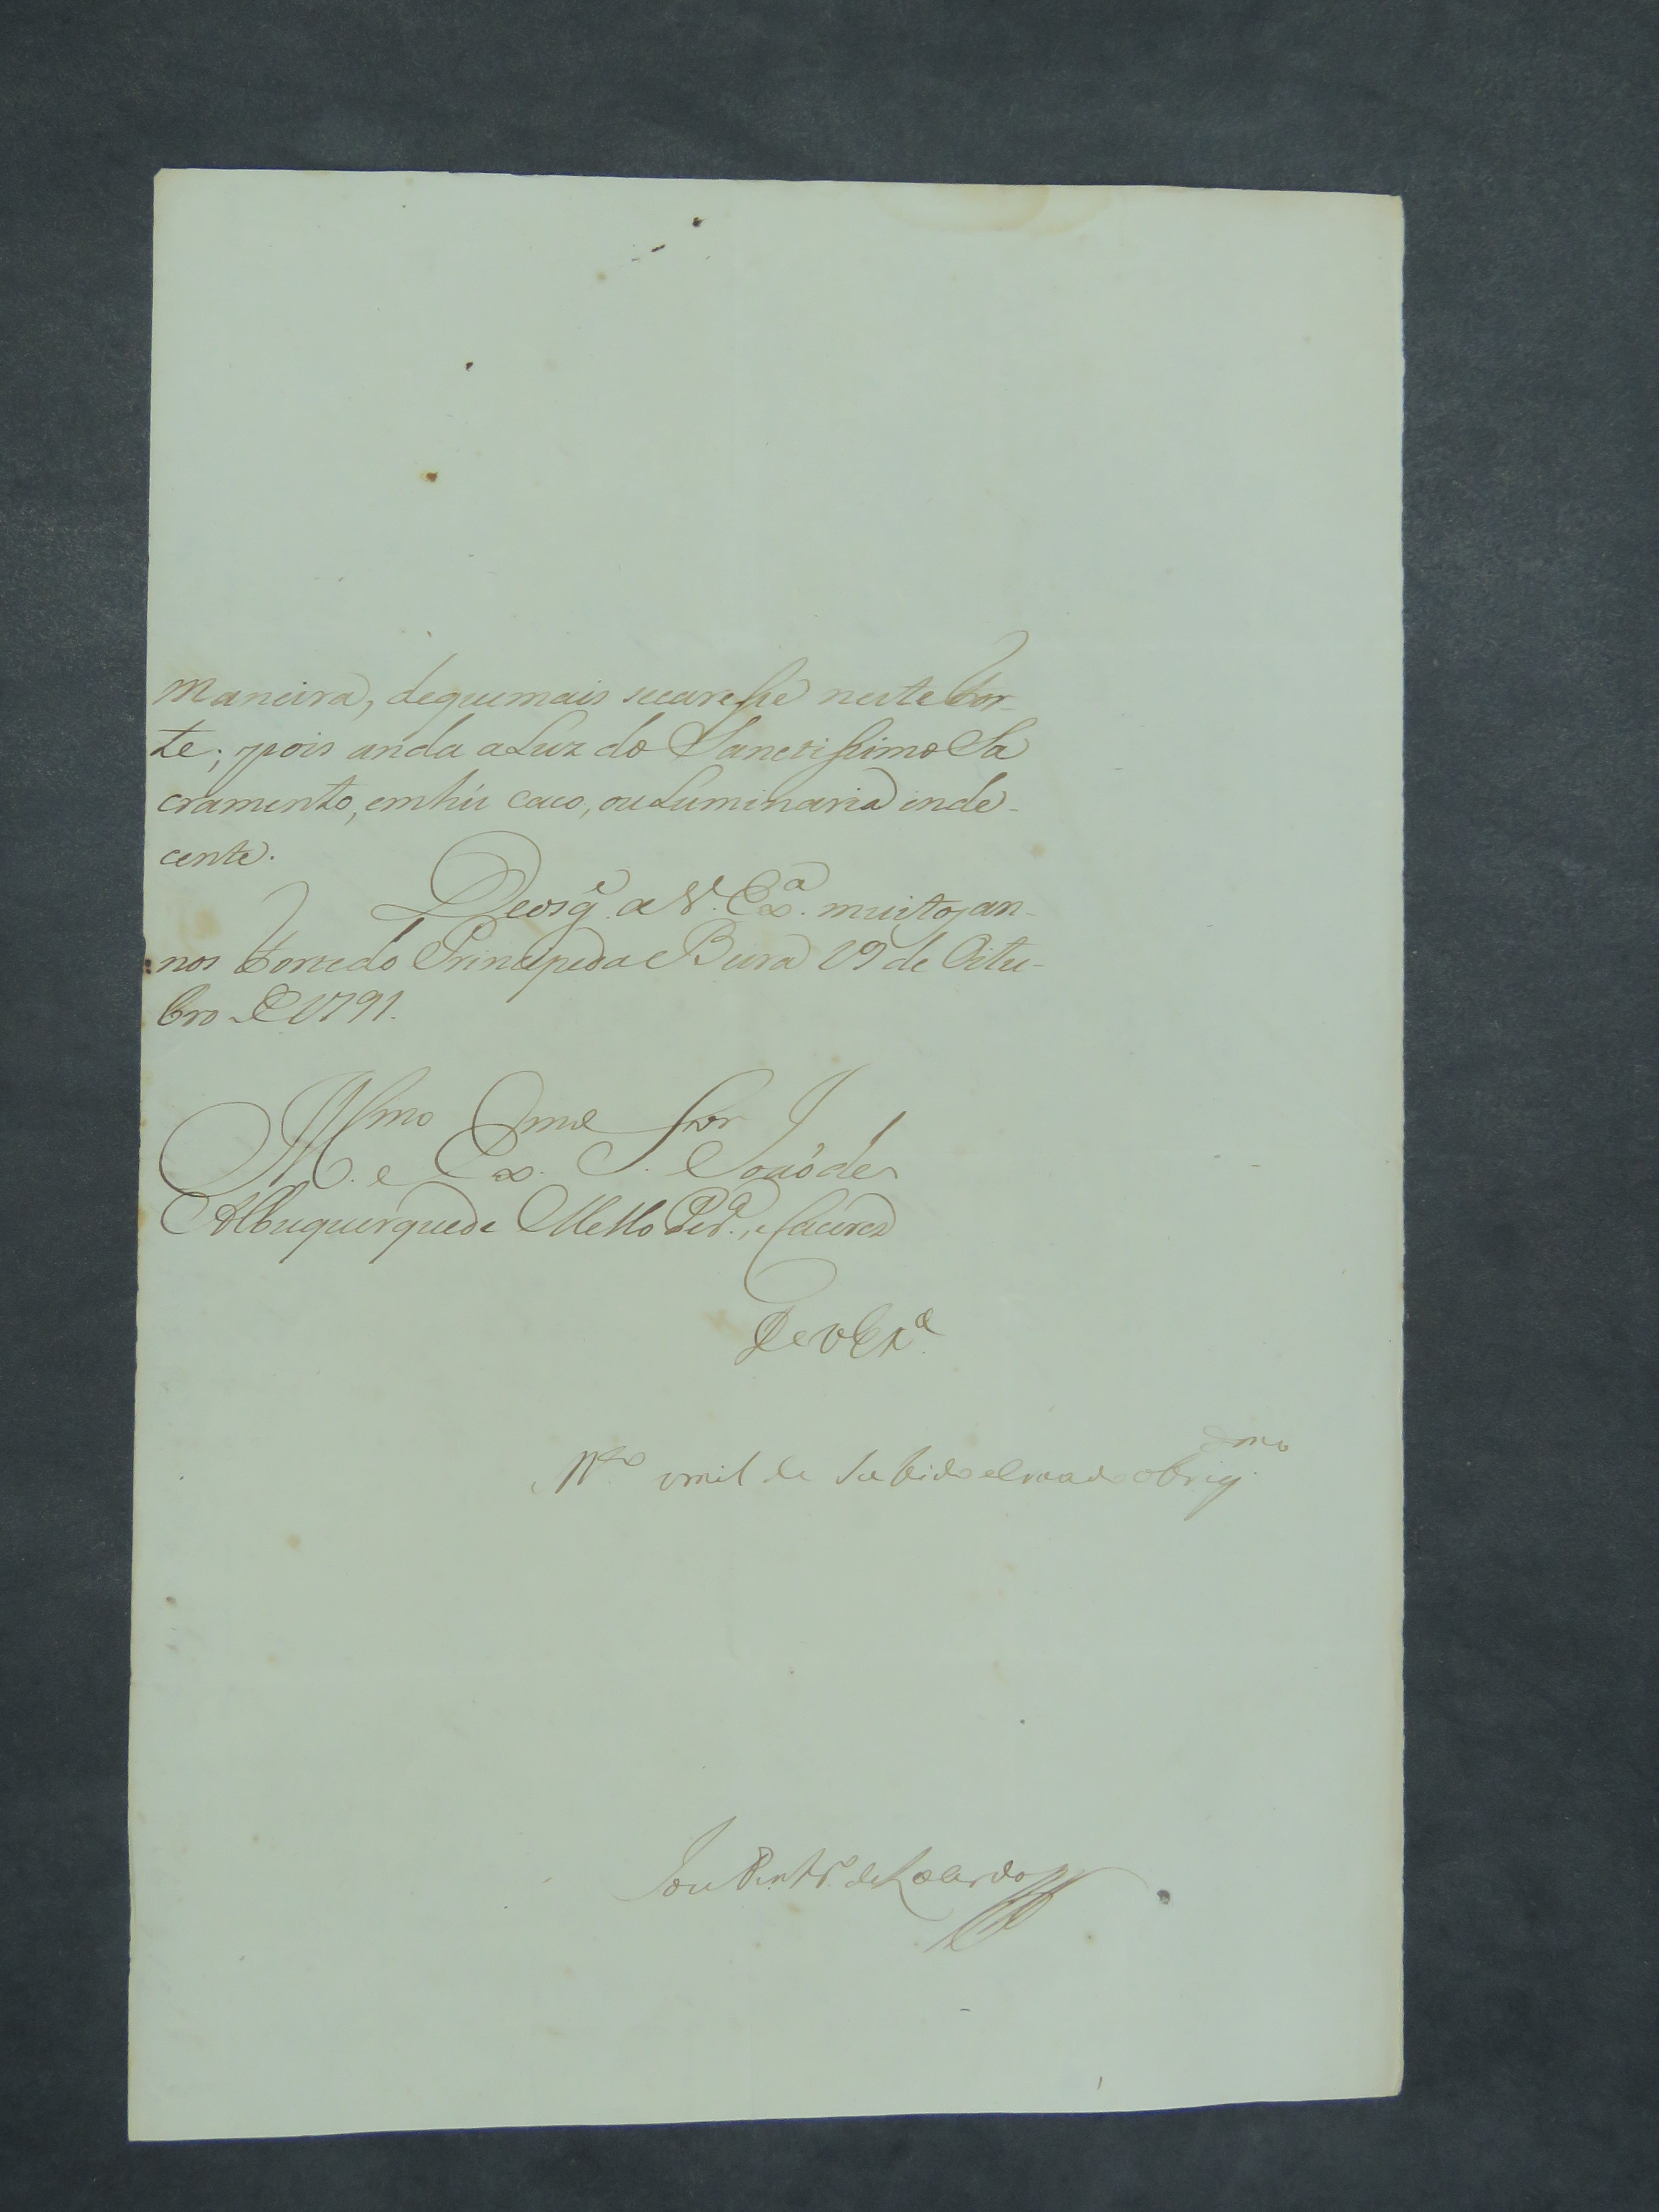 maneira, dequemais secaresse neste For-
te; pois anda aLuz do Sanctissimo Sa
cramento, emhũ caco, ouLuminaria inde-
cente.
Deos g.e a V. Ex.a muitos an-
nos Forte do Principe da Beira 19 de Oitu-
bro de 1791.
Ill.mo e Ex.mo S.nor João de
Albuquerque de Mello Per.a, e Caceres
De V Ex.a
M.to umil de Subido e criado obrig.dmo
Joze Pinh.ro de Lacerda